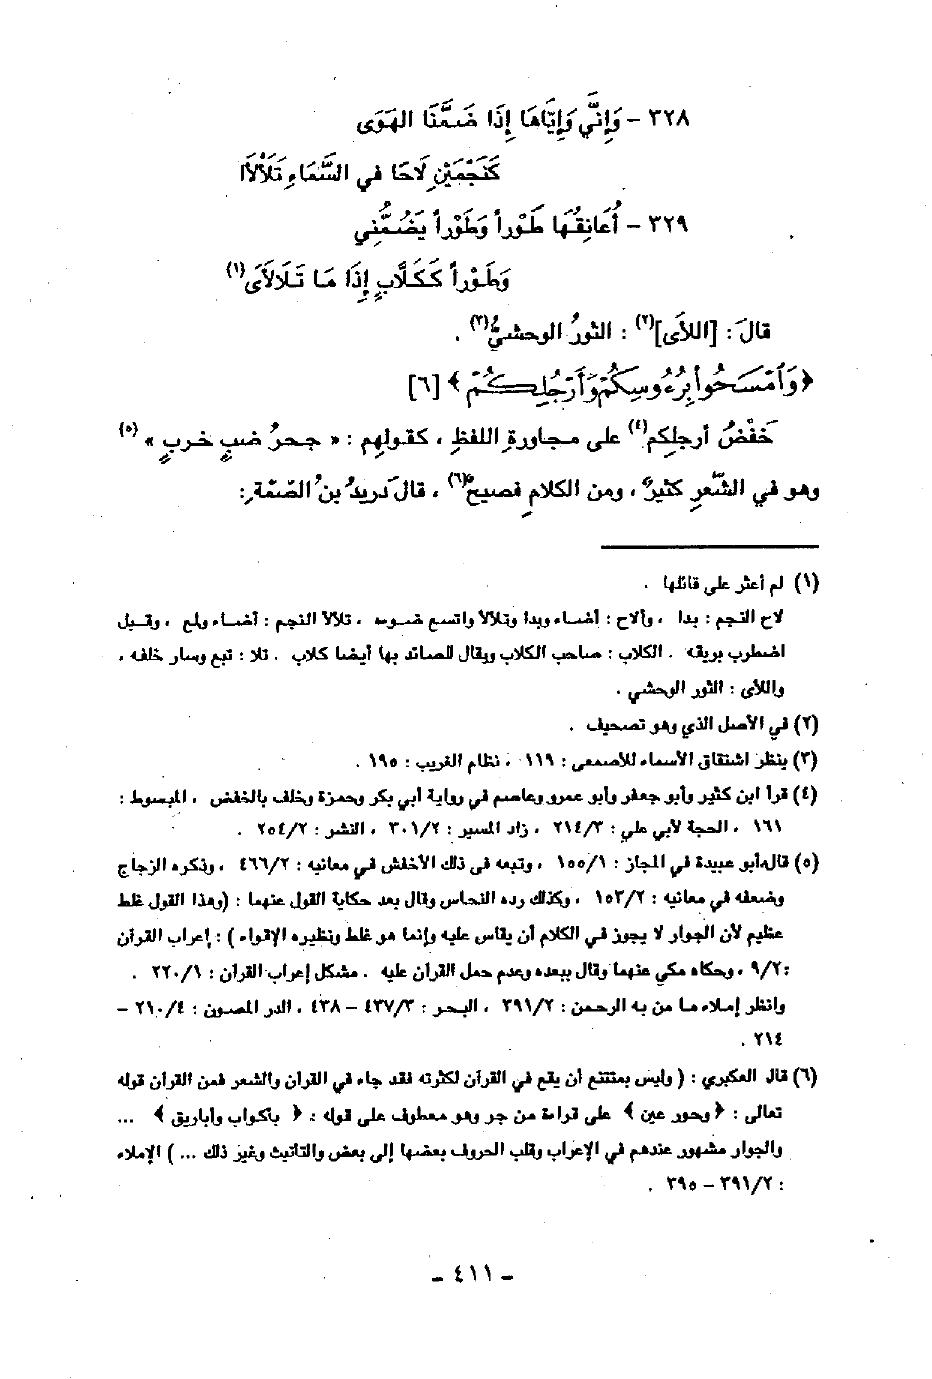 ٣٢٨ - وَإِنِّي وَإِيَّاهَا إِذَا ضَمَّنَا الهَوَى
كَنَجْمَيْنِ لَاحَا في السَّمَاءِ تَلَأْلَأَا
٣٢٩ - أُعَانِقُهَا طَوْراً وَطَوْراً يَضُمُّنِي
وَطَوْراً كَكَلَّابٍ إِذَا مَا تَلَالَأَى (١)
قالَ : [اللأى](٢) : الثورُ الوحشيُّ(٣) .
﴿ وَٱمْسَحُوا۟ بِرُءُوسِكُمْ وَأَرْجُلِكُمْ ﴾ [٦]
خَفْضُ أرجلِكم(٤) على مجاورةِ اللفظِ ، كقولهِم : « جحرُ ضبٍ خربٍ » (٥)
وهو في الشِّعرِ كثيرٌ ، ومن الكلامِ فصيحٌ(٦) ، قال دُريدُ بنُ الصِّمَّةِ :
(١) لم أعثر على قائلها .
لاح النجم : بدا ، وألاح : أضاء وبدا وتلألأ واتسع ضوءه ، تلألأ النجم : أضاء ولمع ، وقيل
اضطرب بريقه . الكلاب : صاحب الكلاب ويقال للصائد بها أيضا كلاب . تلا : تبع وسار خلفه ،
واللأى : الثور الوحشي .
(٢) في الأصل الذي وهو تصحيف .
(٣) ينظر اشتقاق الأسماء للأصمعى : ١١٩ ، نظام الغريب : ١٩٥ .
(٤) قرأ ابن كثير وأبو جعفر وأبو عمرو وعاصم في رواية أبي بكر وحمزة وخلف بالخفض ، المبسوط :
١٦١ ، الحجة لأبي علي : ٢١٤/٣ ، زاد المسير : ٣٠١/٢ ، النشر : ٢٥٤/٢ .
(٥) قاله أبو عبيدة في المجاز : ١٥٥/١ ، وتبعه فى ذلك الأخفش في معانيه : ٤٦٦/٢ ، وذكره الزجاج
وضعفه في معانيه : ١٥٣/٢ ، وكذلك رده النحاس وقال بعد حكاية القول عنهما : (وهذا القول غلط
عظيم لأن الجوار لا يجوز في الكلام أن يقاس عليه وإنما هو غلط ونظيره الإقواء ) : إعراب القرآن
:٩/٢ ، وحكاه مكي عنهما وقال ببعده وعدم حمل القرآن عليه . مشكل إعراب القرآن : ٢٢٠/١ .
وانظر إملاء ما من به الرحمن : ٣٩١/٢ ، البحر : ٤٣٧/٣ – ٤٣٨ ، الدر المصون : ٢١٠/٤ –
٢١٤ .
(٦) قال العكبري : ( وليس بمتتنع أن يقع في القرآن لكثرته فقد جاء في القرآن والشعر فمن القرآن قوله
تعالى : ﴿ وحور عين ﴾ على قراءة من جر وهو معطوف على قوله : ﴿ بأكواب وأباريق ﴾ ...
والجوار مشهور عندهم في الإعراب وقلب الحروف بعضها إلى بعض والتأنيث وغير ذلك ... ) الإملاء
: ٣٩١/٢ – ٣٩٥ .
- ٤١١ -